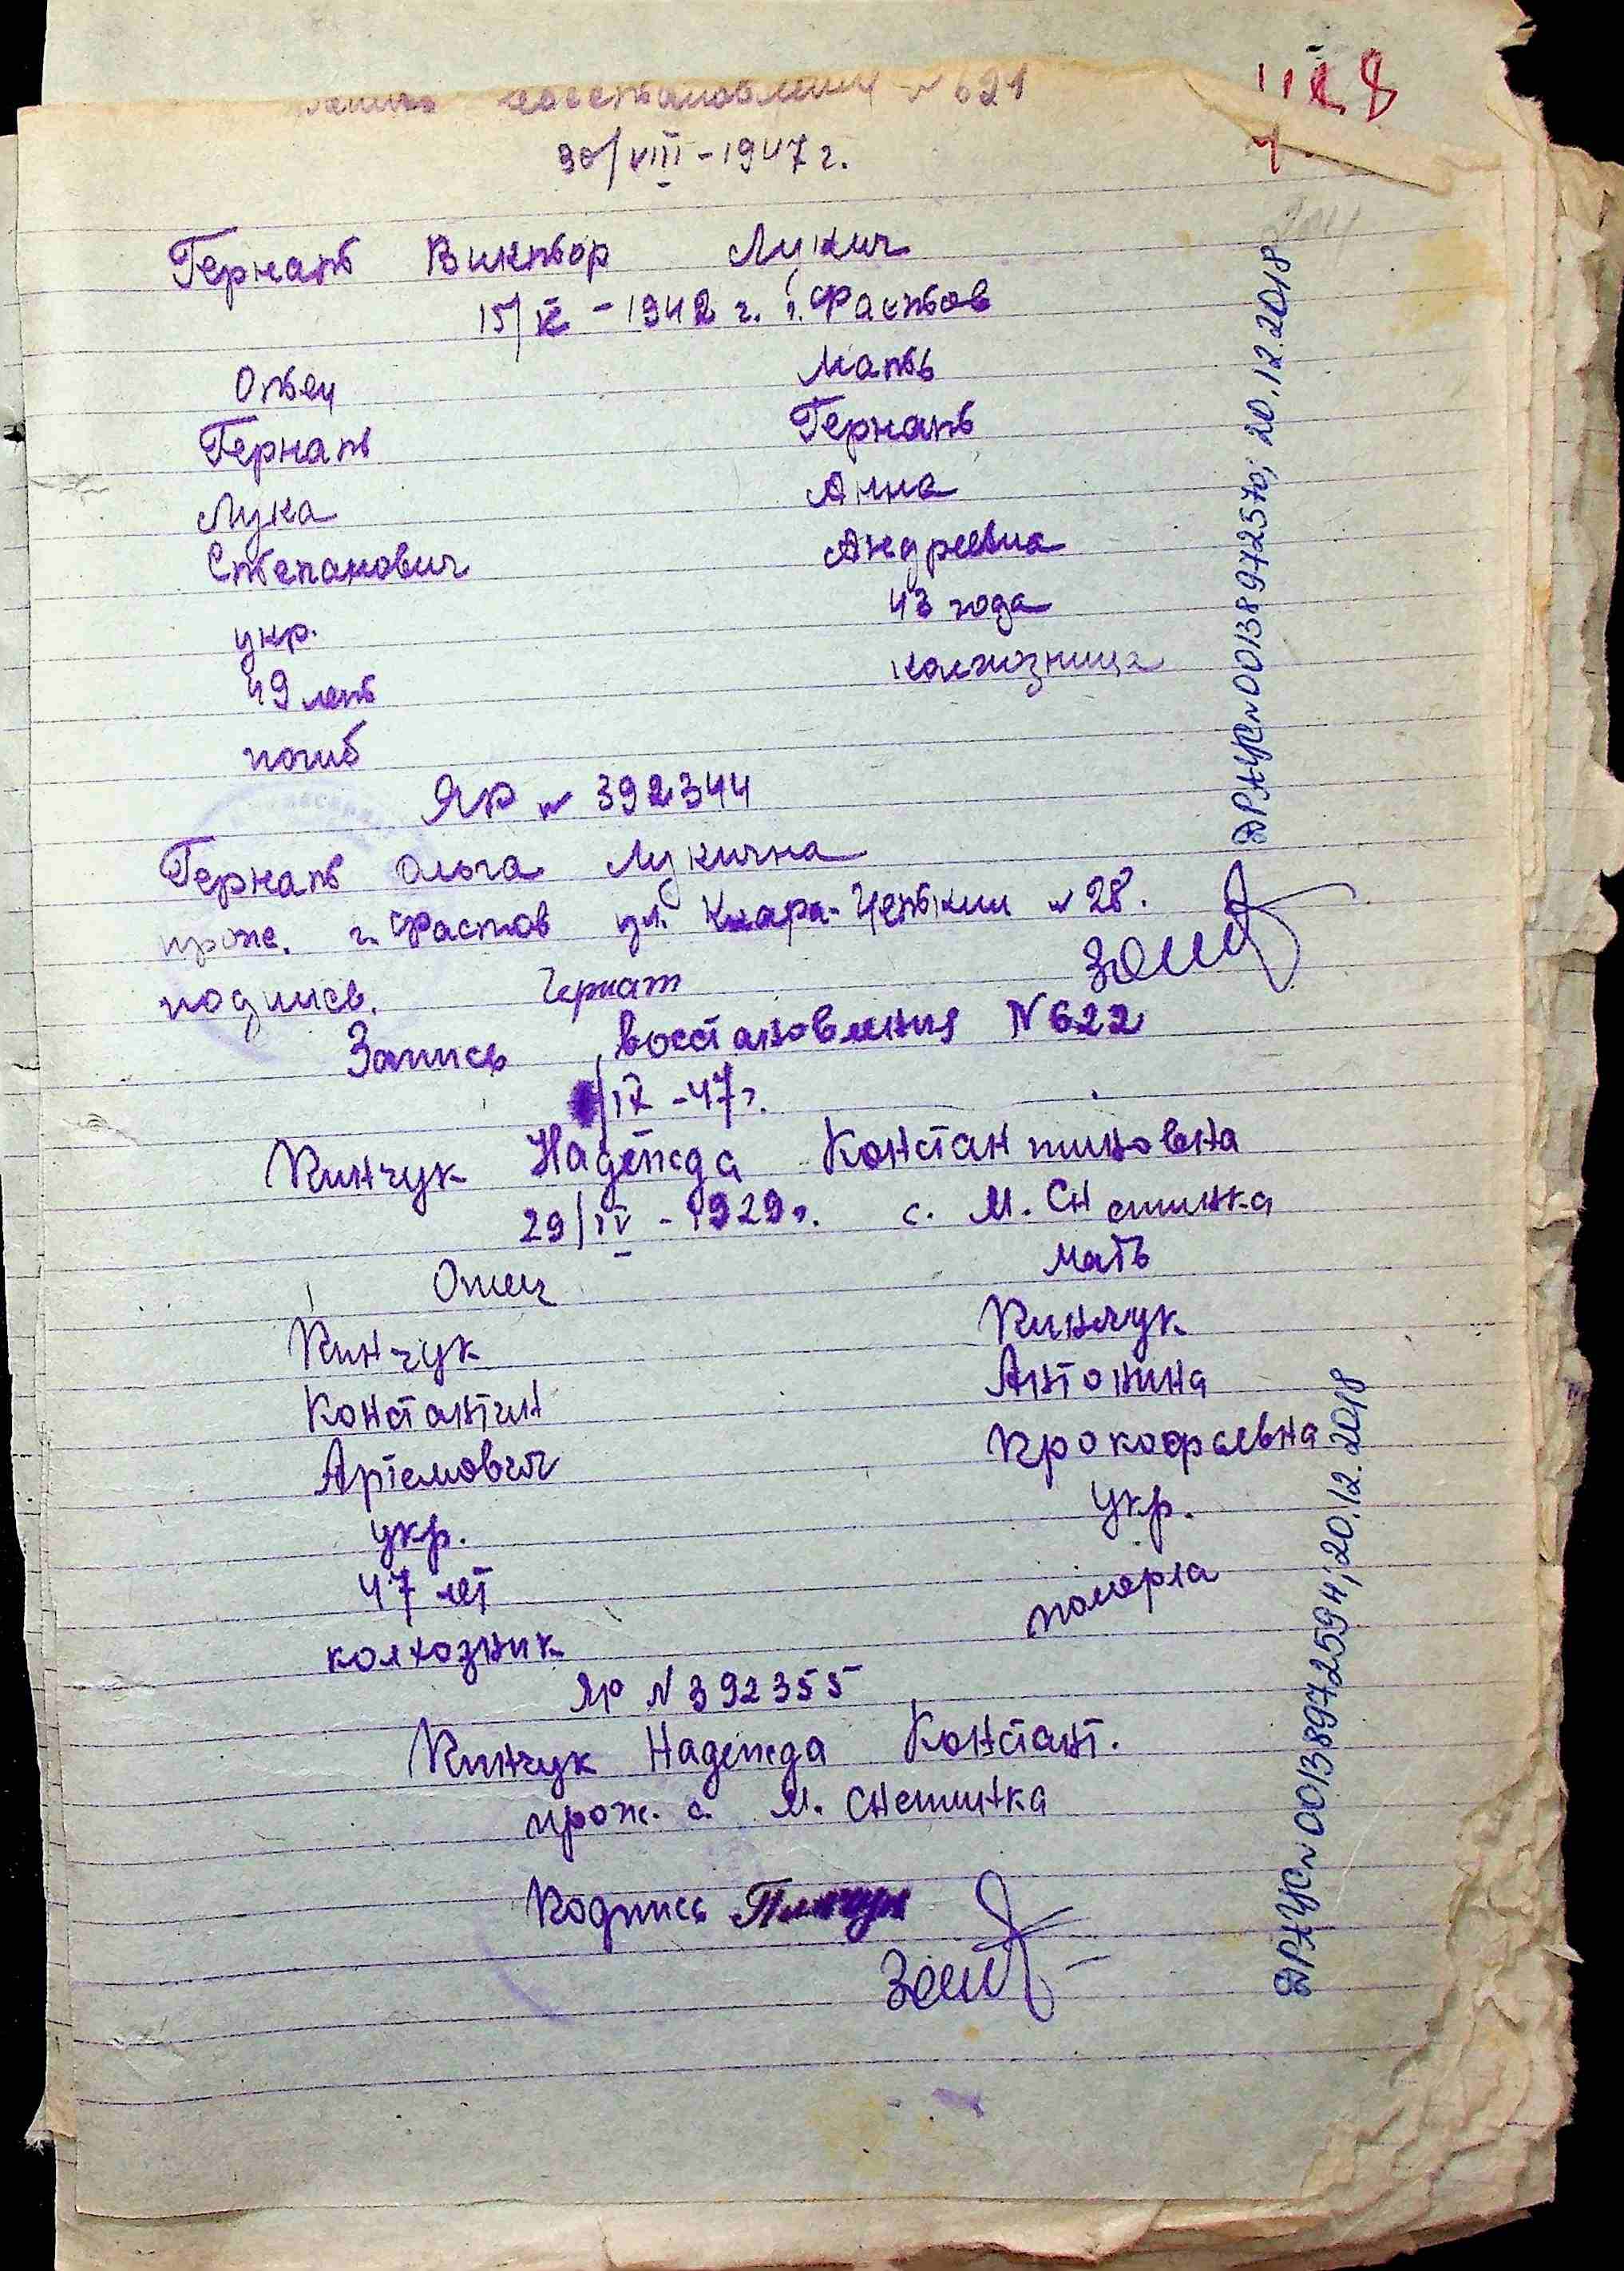 Запись восстановления № 621
30/VIII - 1947 г.
Гернать Виктор Лукич
15/IX - 1942 г. г. Фастов
Отец Мать
Гернать Гернать
Лука Анна
Степанович Андреевна
укр. 43 года
49 лет колхозница
погиб
ЯР № 392344
Гернать Ольга Лукична
прож. г. Фастов ул. Клара-Цеткин № 28.
подпись. Гернат
Запись востановления N 622
/IX - 47 г.
Пинчук Надежда Константиновна
29/IV - 1929 г. с. М. Снетинка
Отец мать
Пинчук Пинчук
Константин Антонина
Артемович Прокофьевна
укр. укр.
47 лет померла
колхозник
ЯР N 392355
Пинчук Надежда Констант.
прож. с. М. Снетинка
Подпись Пинчук
ДРАЦС № 00138972570; 20.12.2018
ДРАЦС № 00138972594; 20.12.2018